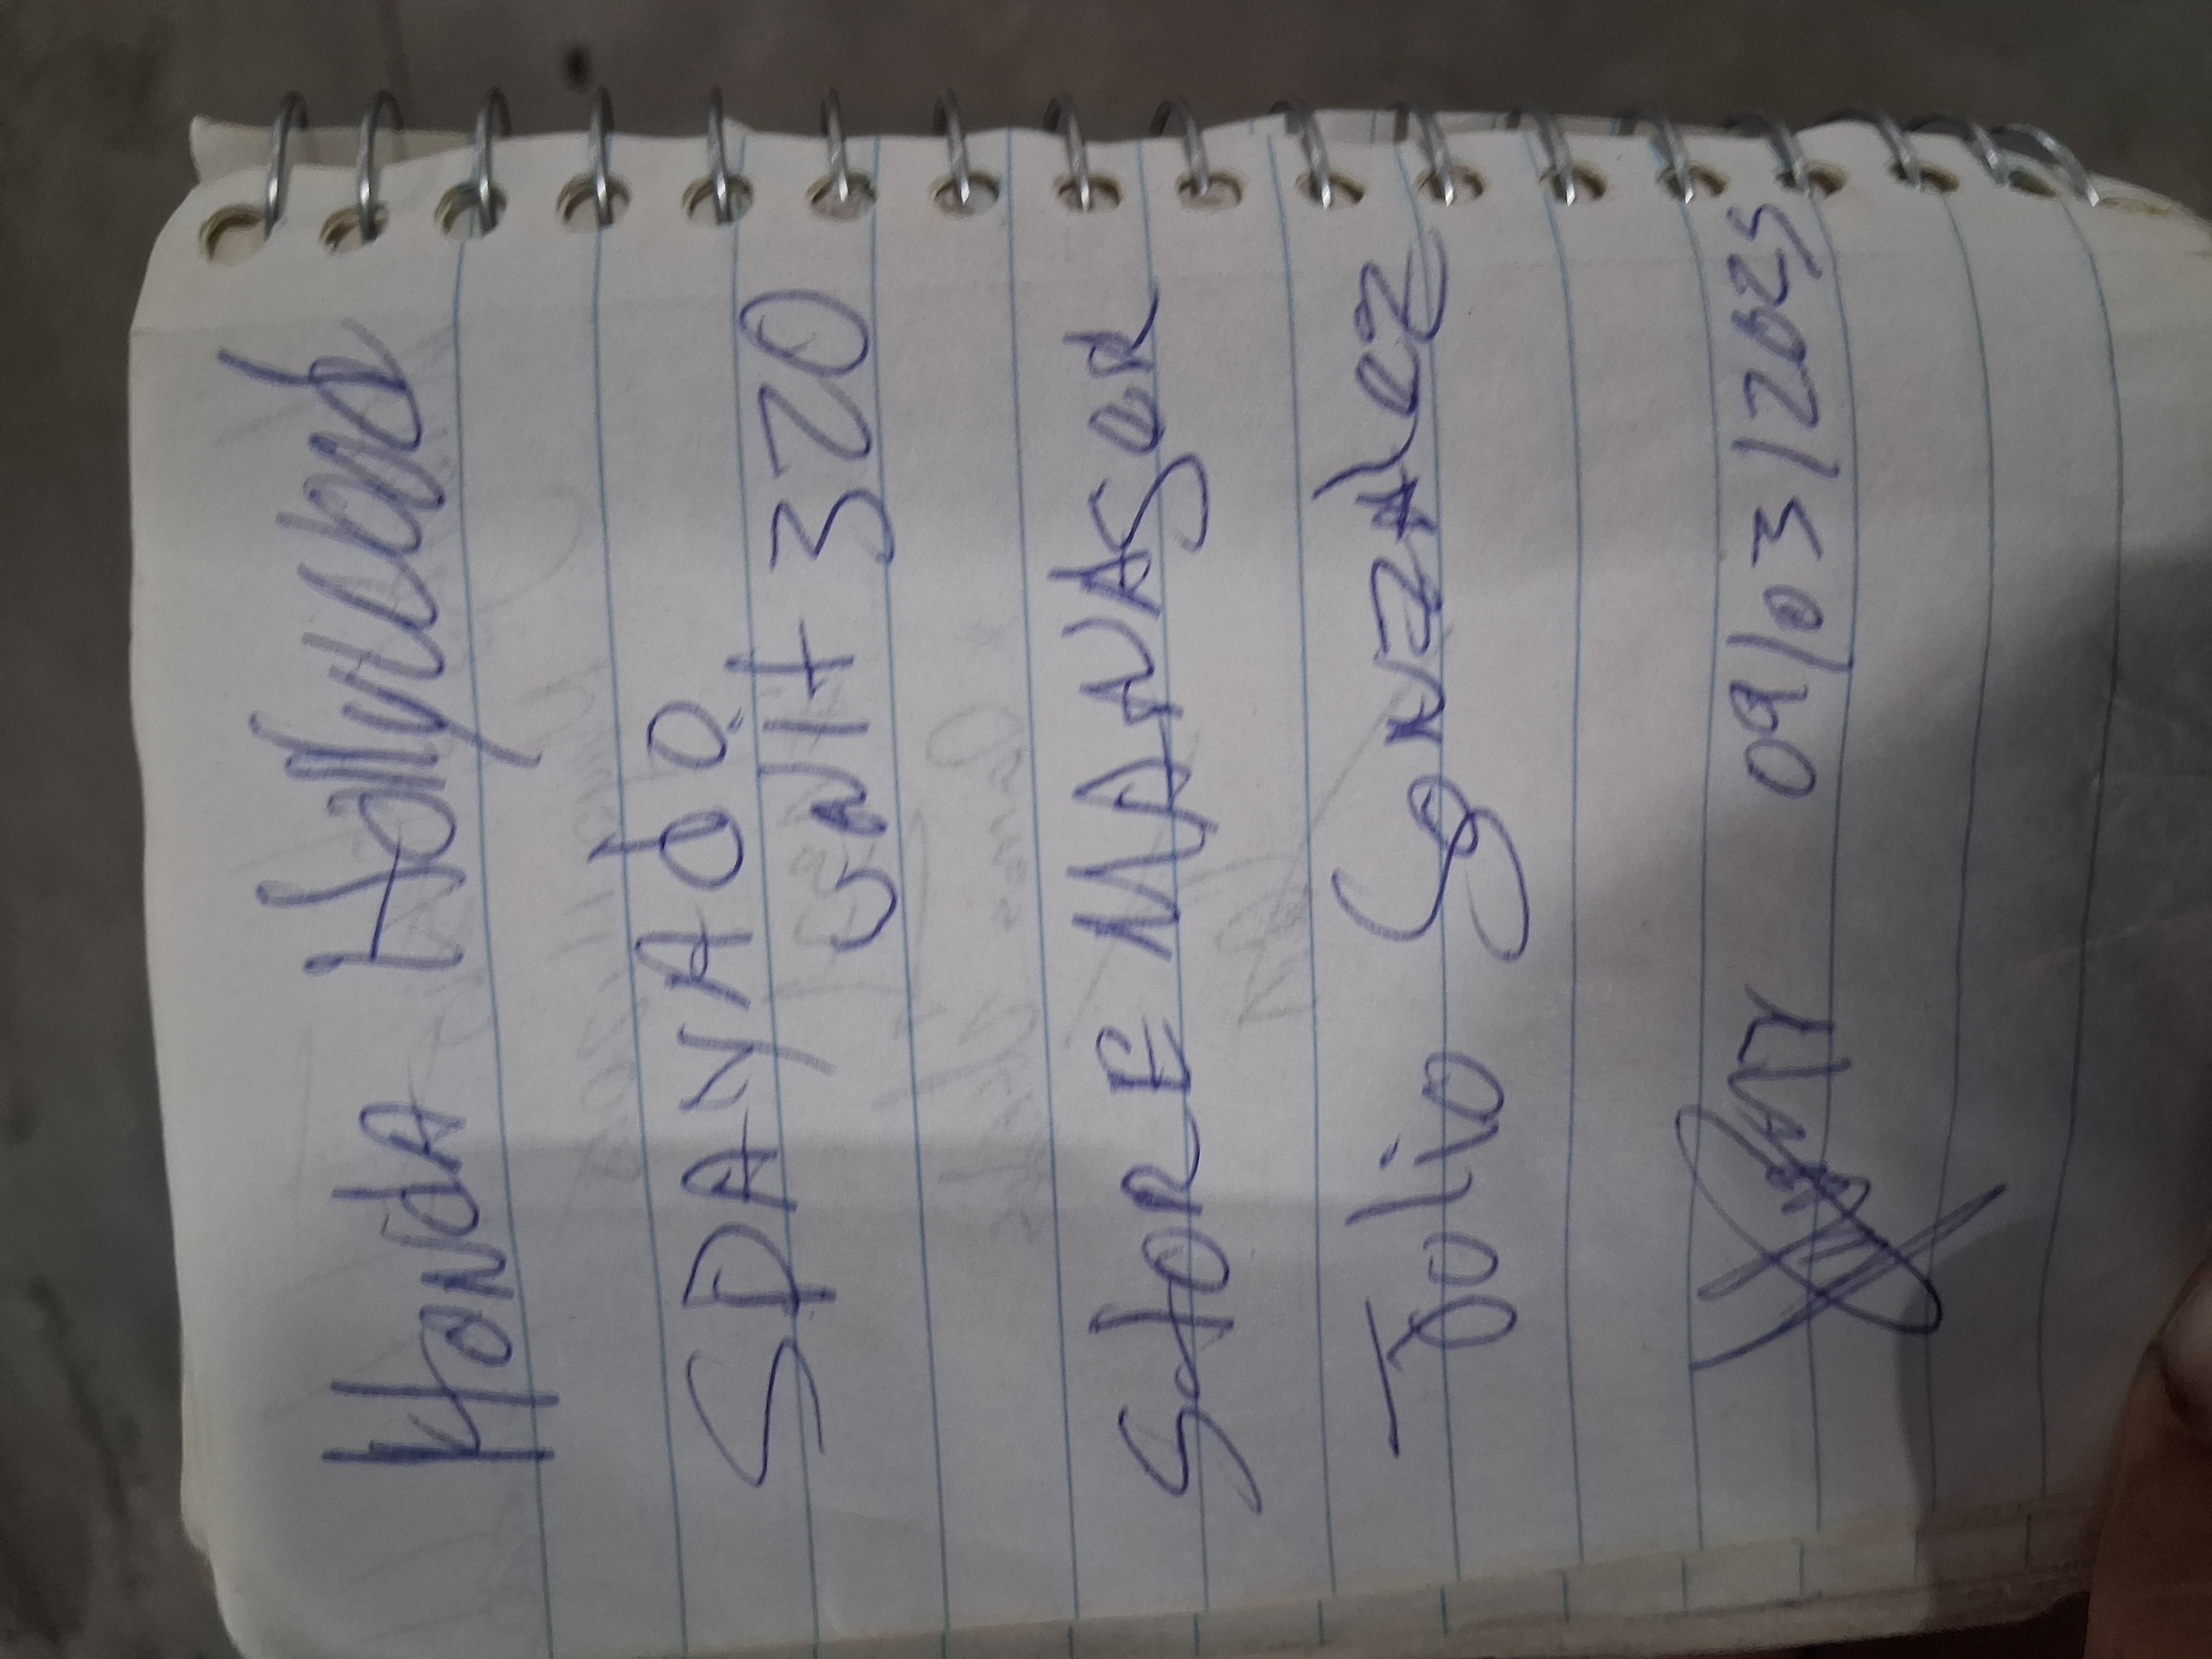 HONdA Hollywood
SPAYAdO
UNit 320
StORE MANAGER
JOliO GONZALEZ
09/03/2025